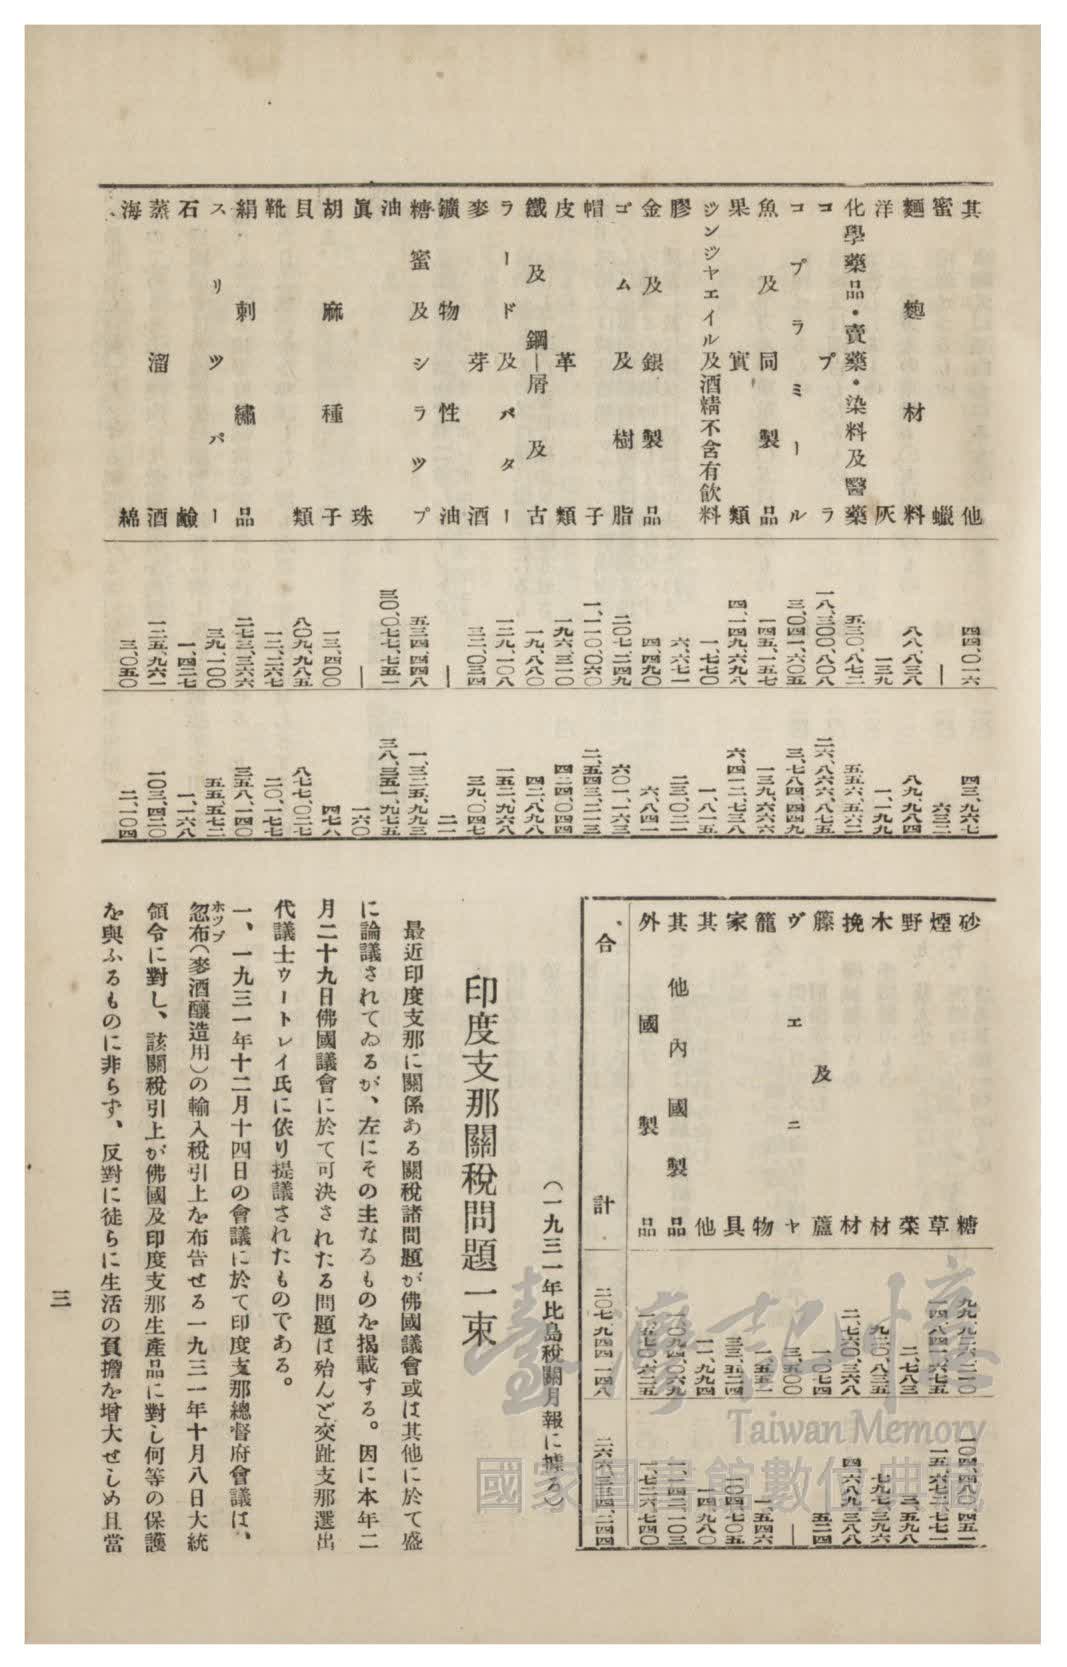 其他 四四、〇一六 四三、九六七
蜜蠟 — 六三二
麵麭材料 八八、八三八 八九、九八四
洋灰 一三九 一、一九九
化學藥品・賣藥・染料及醫藥 五三〇、八七二 五五六、五六二
コプラ 一八、三〇〇、八〇八 二六、八六六、八七五
コプラミール 三、〇四一、六〇五 三、七八四、四四九
魚及同製品 一四五、一五七 一三九、六六六
果實類 四、一四九、六九八 六、四一二、七三八
ジンジヤエイル及酒精不含有飮料 一、七七〇 一、八一五
膠 六、六七一 二三、〇二一
金及銀製品 四、四九〇 六、八四一
ゴム及樹脂 二〇七、二四九 六〇一、一六三
帽子 一、一一〇、〇六〇 二、五四三、二一三
皮革類 一九六、三二〇 四二四、〇四四
鐵及鋼―屑及古 一九、八八〇 四二八、九九八
ラード及バター 一二九、一〇八 一五二、九六八
麥芽酒 三二、〇三四 三九、〇四七
鑛物性油 — 二一
糖蜜及シラツプ 五三四、四四八 一、三二五、九九三
油 三〇、〇七七、七五一 三八、三五一、九七五
眞珠 — 一六〇
胡麻種子 一三、四〇〇 四七八
貝類 八〇九、九八五 八七七、〇二七
靴 一二、二六七 二〇、一七七
絹刺繡品 二七三、三六六 三五八、一四〇
スリツパー 三九、一〇〇 五五、五七二
石鹼 一、四二七 一、一六八
蒸溜酒 一二五、九六一 一〇三、四二〇
海綿 三、〇五〇 二、一〇四
砂糖 九九、九二六、二一〇 一〇四、四八〇、四五一
煙草 一四、八四一、六七五 一五、六七二、七七一
野菜 二、七八三 三、五九八
木材 九二〇、八三五 七九七、三九六
挽材 二、七六〇、三六八 四、六八九、三八八
籐及蘆 一、〇七四 五二四
ヴエニヤ 三、五〇〇 —
籠物 一五五一 一、五四六
家具 三三、五二四 一〇四、七〇五
其他 一一、九九四 一四、九八〇
其他內國製品 一、〇九四、〇六九 一、一四二、一〇三
外國製品 一、五七〇、六二五 一、七二六、七四〇
合計 二〇七、九四四、一四八 二六六、三三四、二四四
(一九三一年比島稅關月報に據る)
印度支那關稅問題一束
最近印度支那に關係ある關稅諸問題が佛國議會或は其他に於て盛
に論議されてゐるが、左にその主なるものを揭載する。因に本年二
月二十九日佛國議會に於て可決されたる問題は殆んど交趾支那選出
代議士ウートレイ氏に依り提議されたものである。
一、一九三一年十二月十四日の會議に於て印度支那總督府會議は、
忽布(麥酒釀造用)の輸入稅引上を布告せる一九三一年十月八日大統
ホツプ
領令に對し、該關稅引上が佛國及印度支那生產品に對し何等の保護
を與ふるものに非らず、反對に徒らに生活の負擔を增大せしめ且當
三
臺灣記憶
Taiwan Memory
國家圖書館數位典藏